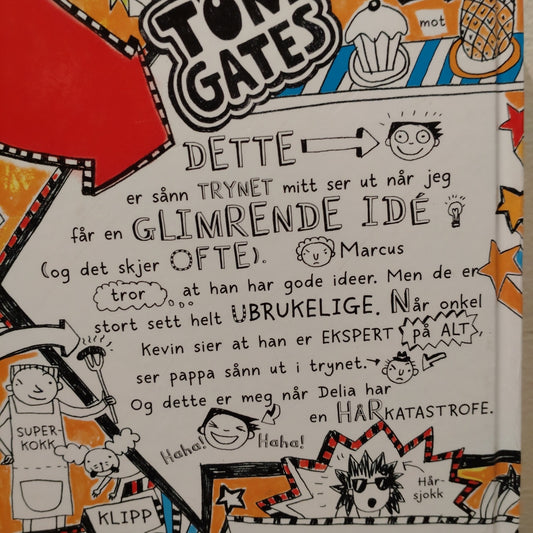 TOM
GATES
mot
DETTE
er sånn TRYNET mitt ser ut når jeg
får en GLIMRENDE IDÉ
(og det skjer OFTE). Marcus
tror... at han har gode ideer. Men de er
stort sett helt UBRUKELIGE. Når onkel
Kevin sier at han er EKSPERT på ALT,
ser pappa sånn ut i trynet.
Og dette er meg når Delia har
en HÅRKATASTROFE.
SUPER-
KOKK
Haha! Haha!
Hår-
sjokk
KLIPP